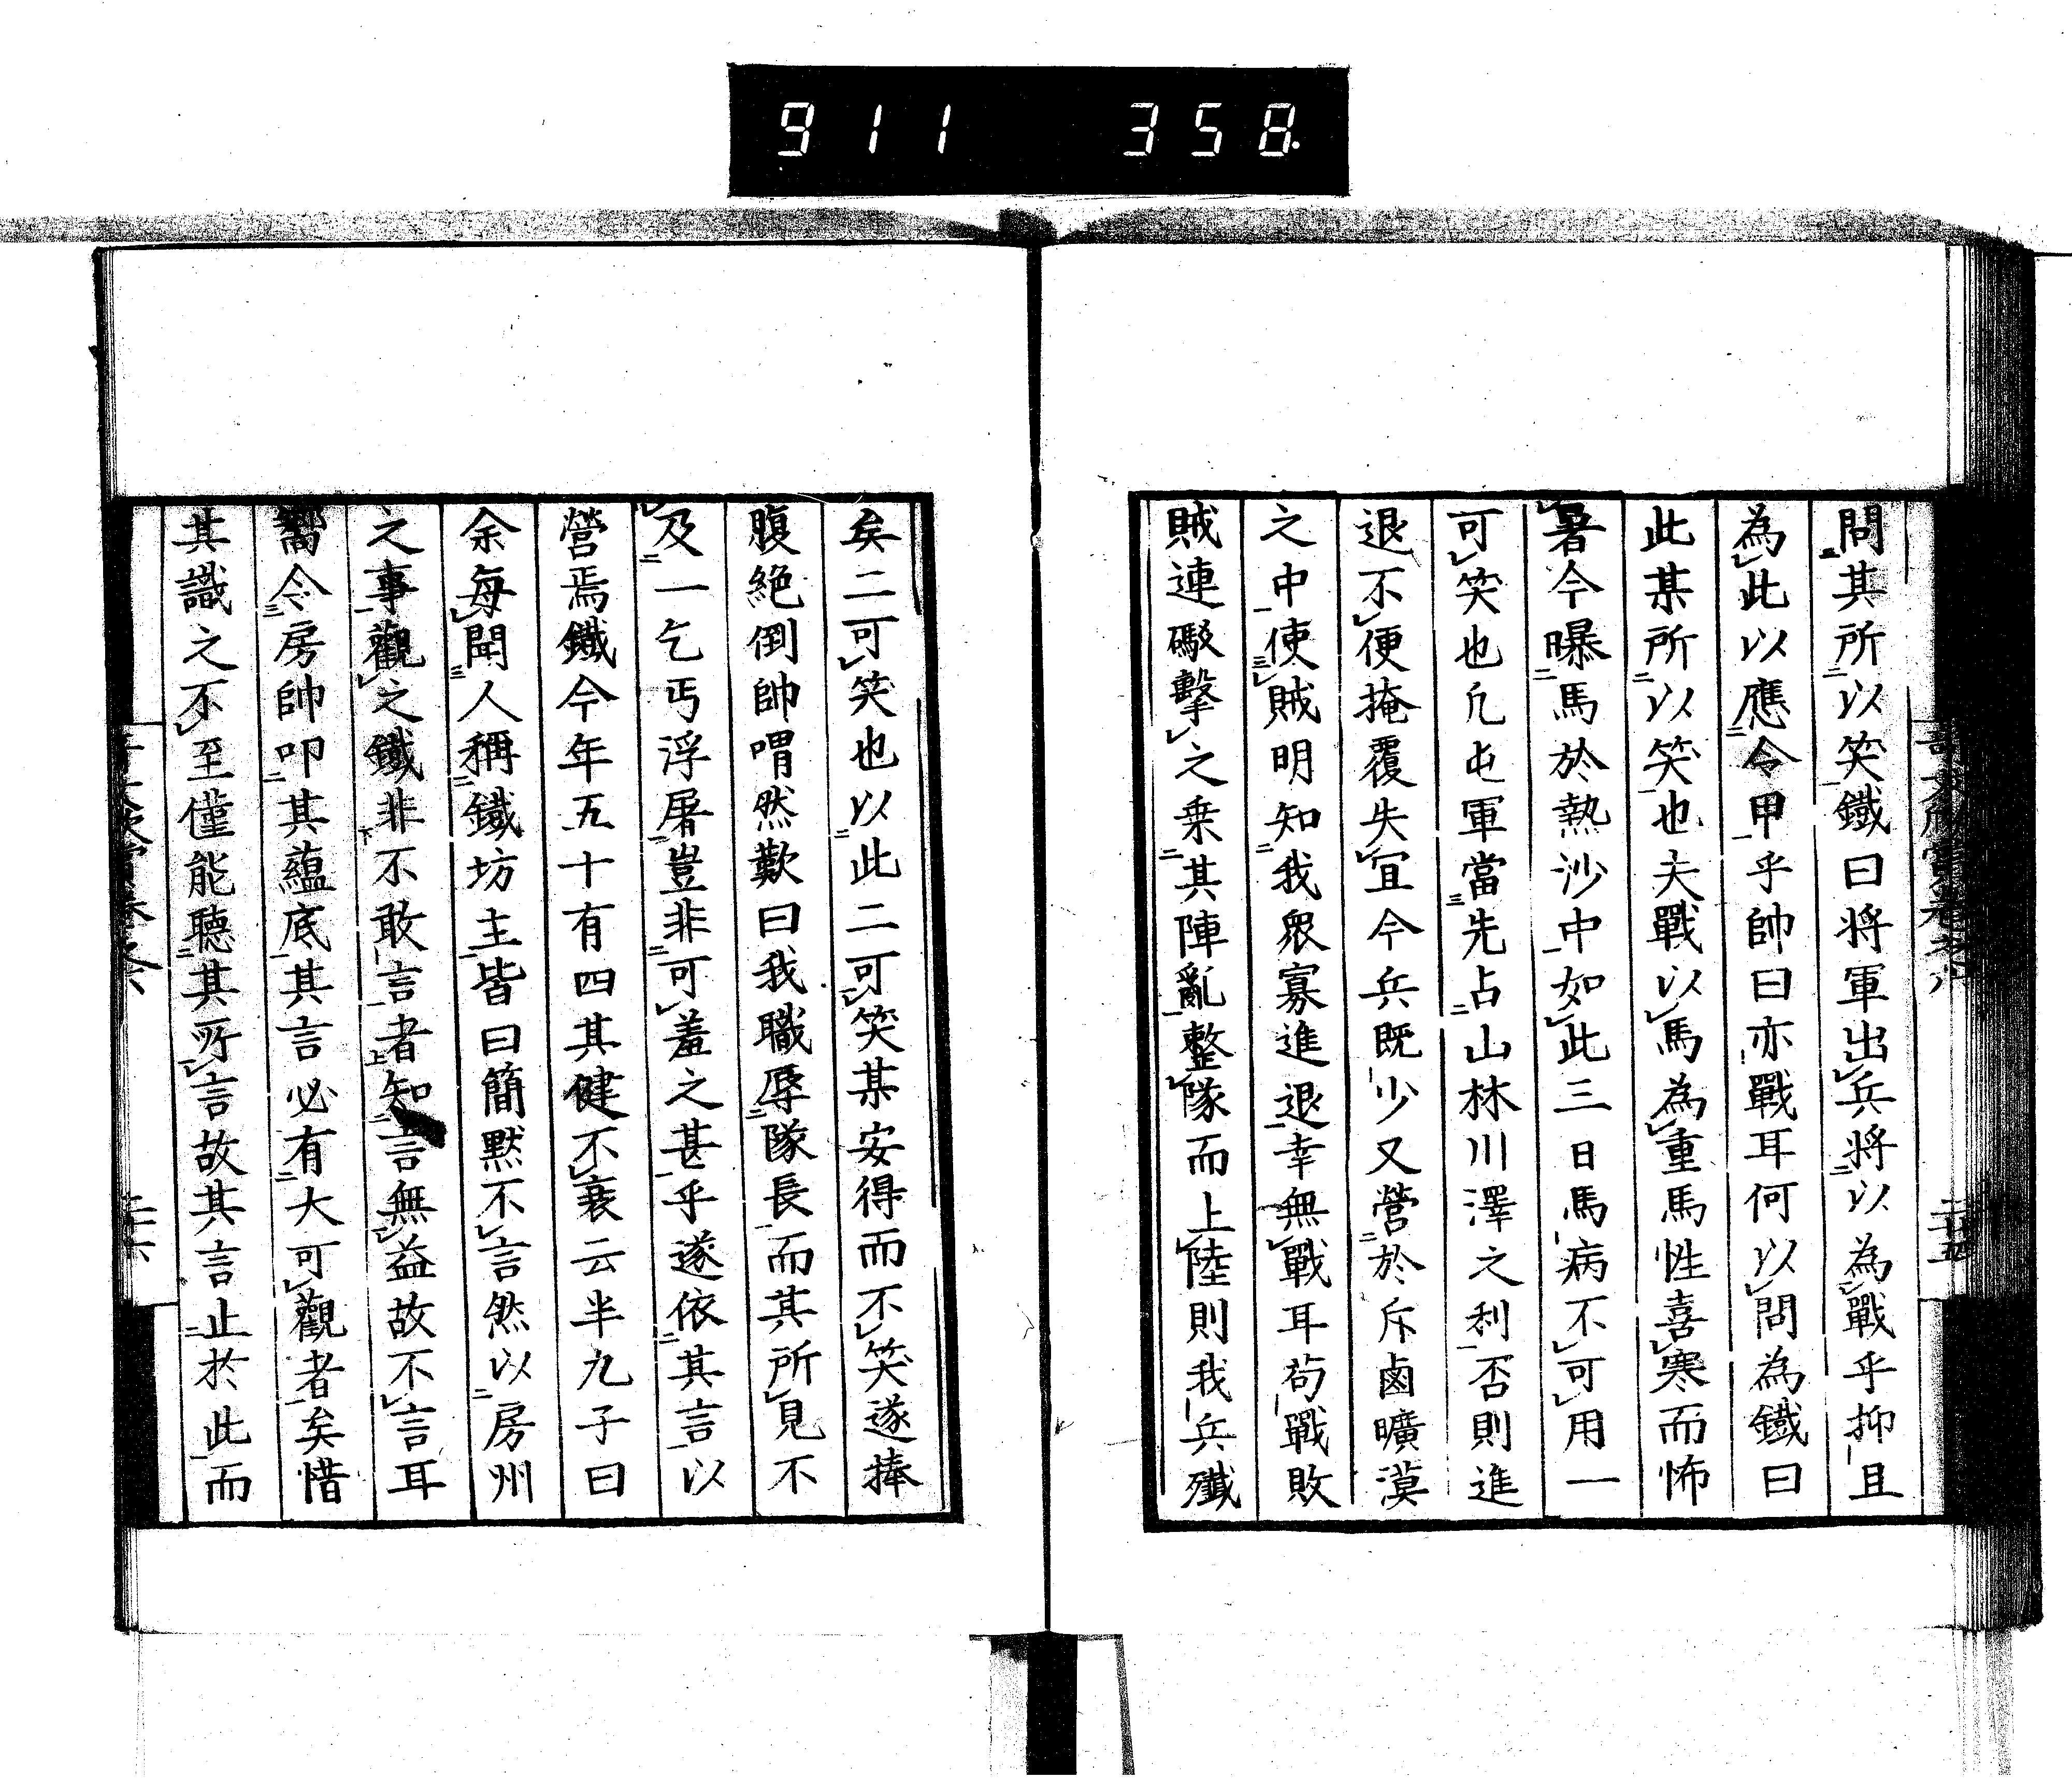 911 358
問其所以笑鐵曰将軍出兵将以為戰乎抑且
為此以應令甲乎帥曰亦戰耳何以問為鐵曰
此某所以笑也夫戰以馬為重馬性喜寒而怖
暑今曝馬於熱沙中如此三日馬病不可用一
可笑也凢屯軍當先占山林川澤之利否則進
退不便掩覆失宜今兵既少又營於斥鹵曠漠
之中使賊明知我衆寡進退幸無戰耳苟戰敗
賊連毆擊之乗其陣亂整隊而上陸則我兵殲
矣二可笑也以此二可笑某安得而不笑遂捧
腹絶倒帥喟然歎曰我職辱隊長而其所見不
及一乞丐浮屠豈非可羞之甚乎遂依其言以
營焉鐵今年五十有四其健不衰云半九子曰
余每聞人稱鐵坊主皆曰簡黙不言然以房州
之事觀之鐵非不敢言者知言無益故不言耳
嚮令房帥叩其蘊底其言必有大可觀者矣惜
其識之不至僅能聴其所言故其言止於此而